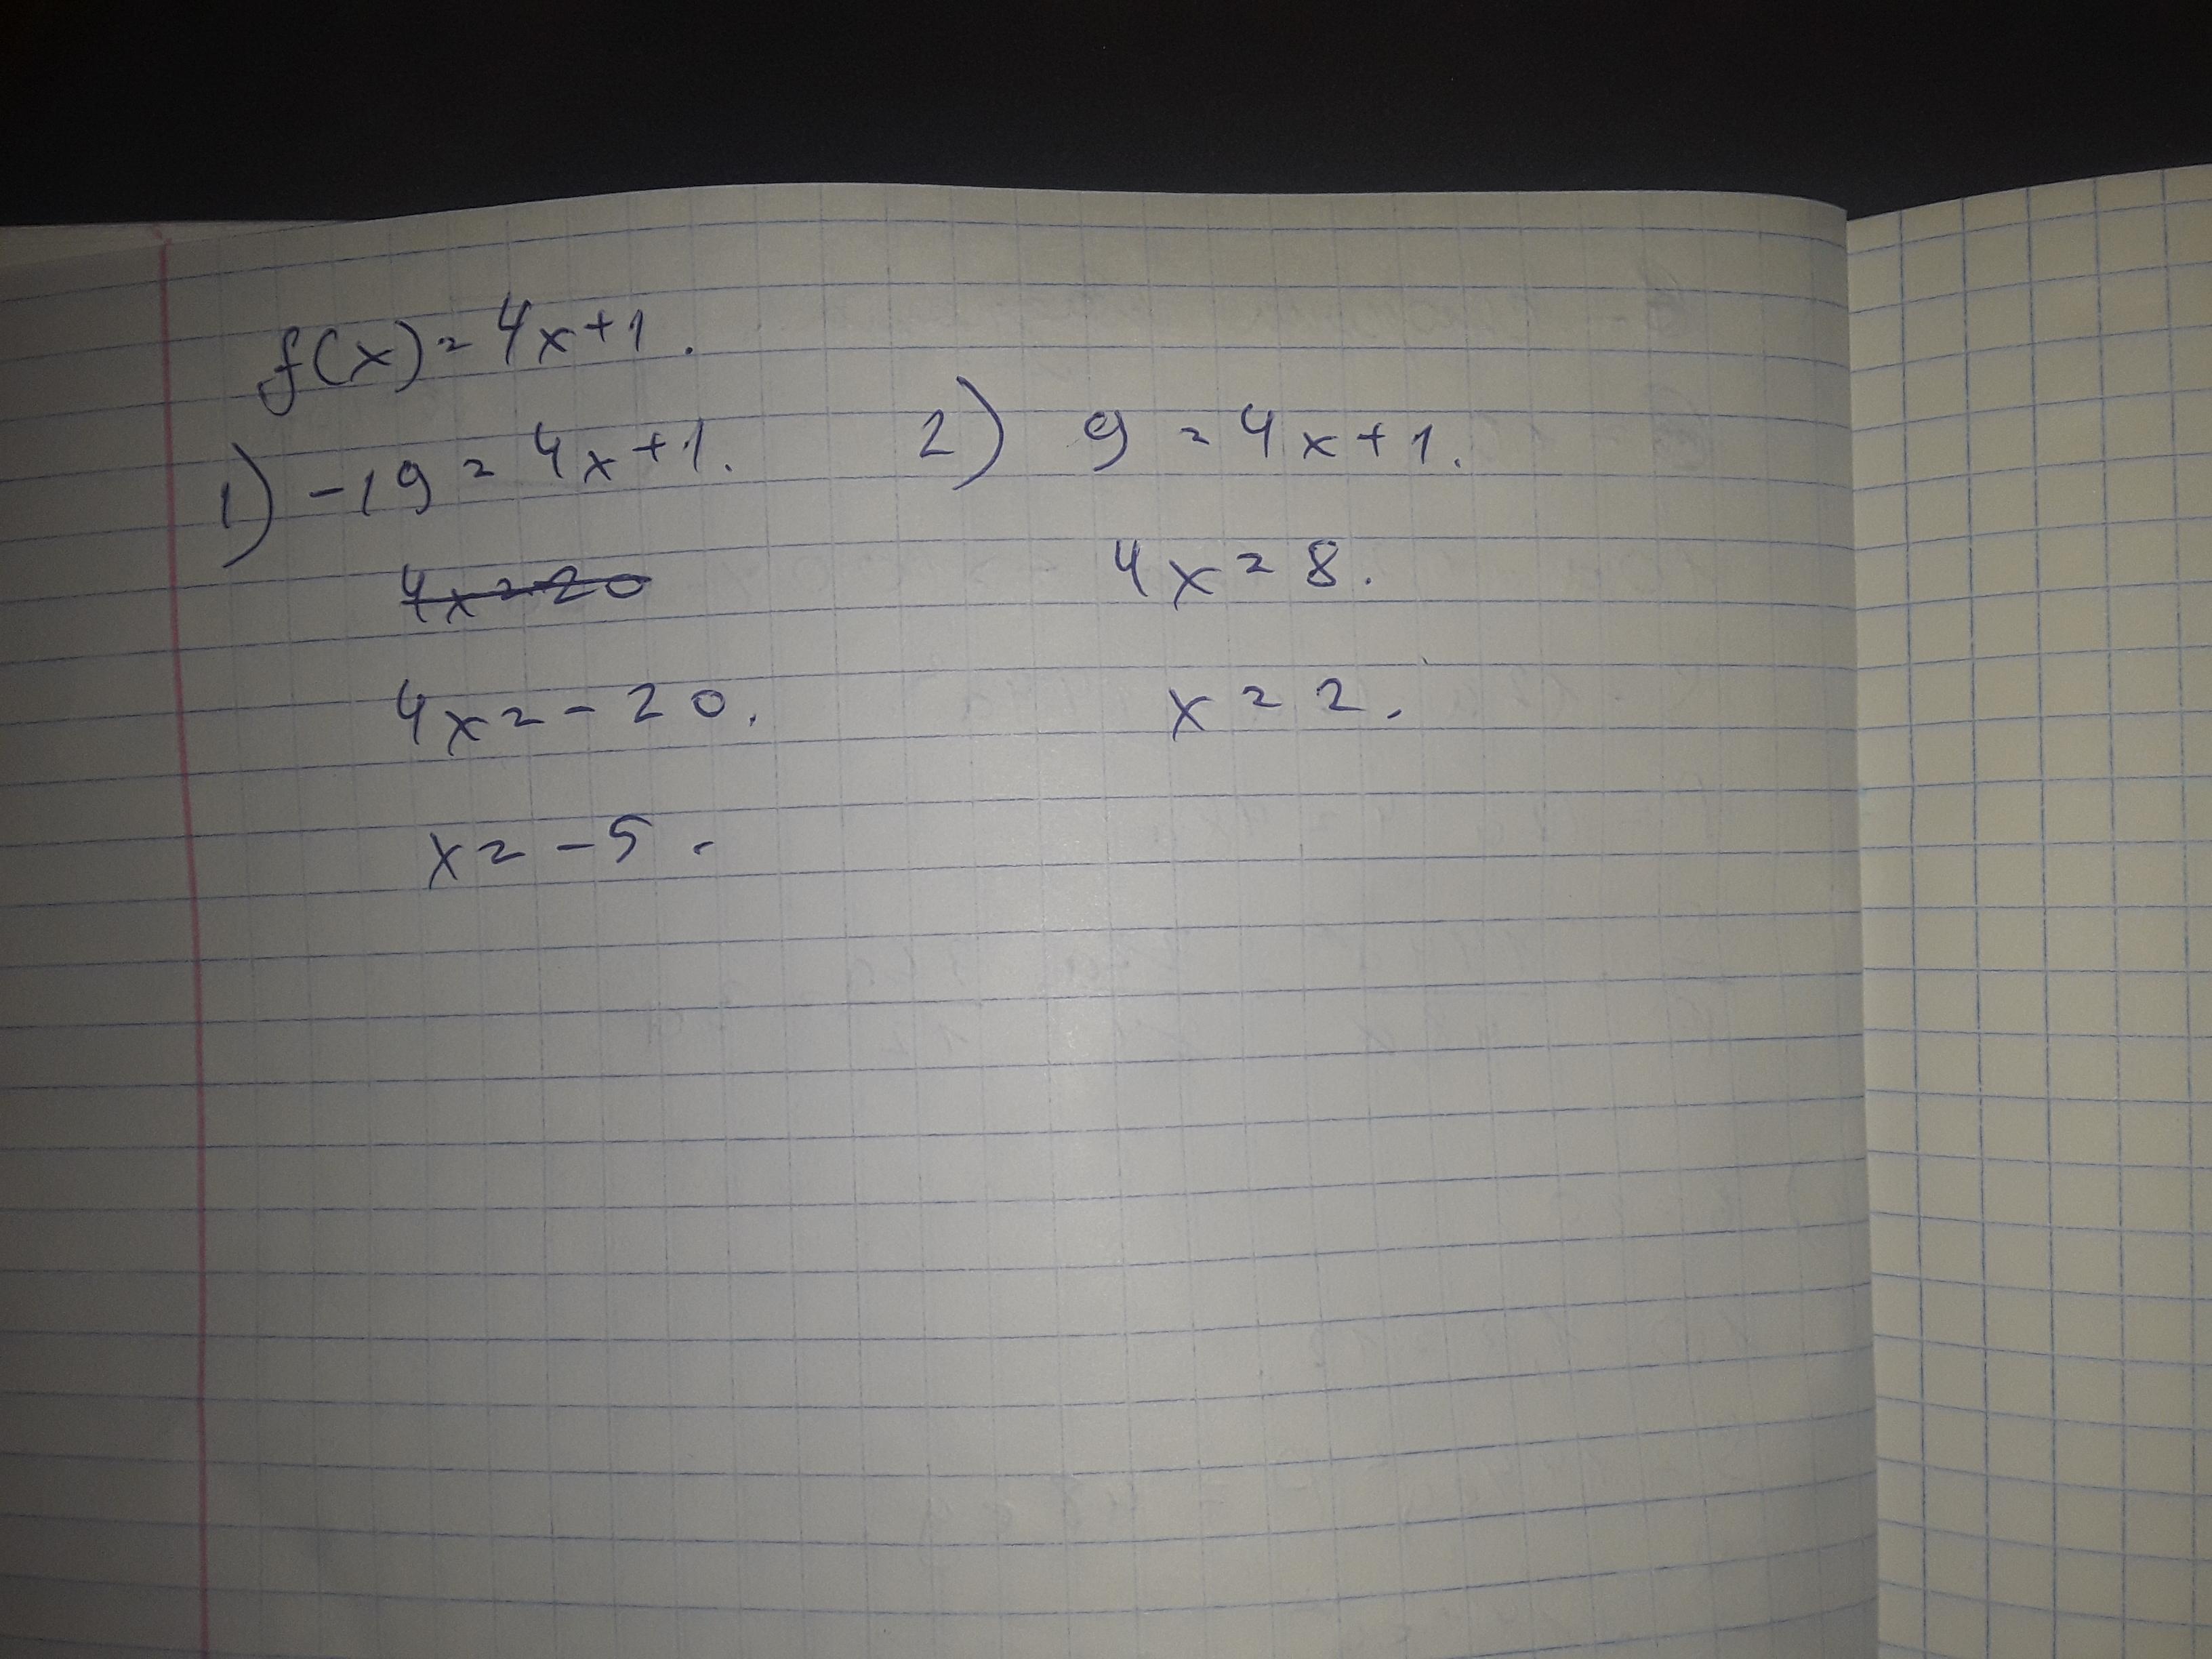 f(x)=4x+1.
1) -19=4x+1.
4x=20
4x=-20.
x=-5.
2) 9=4x+1.
4x=8.
x=2.